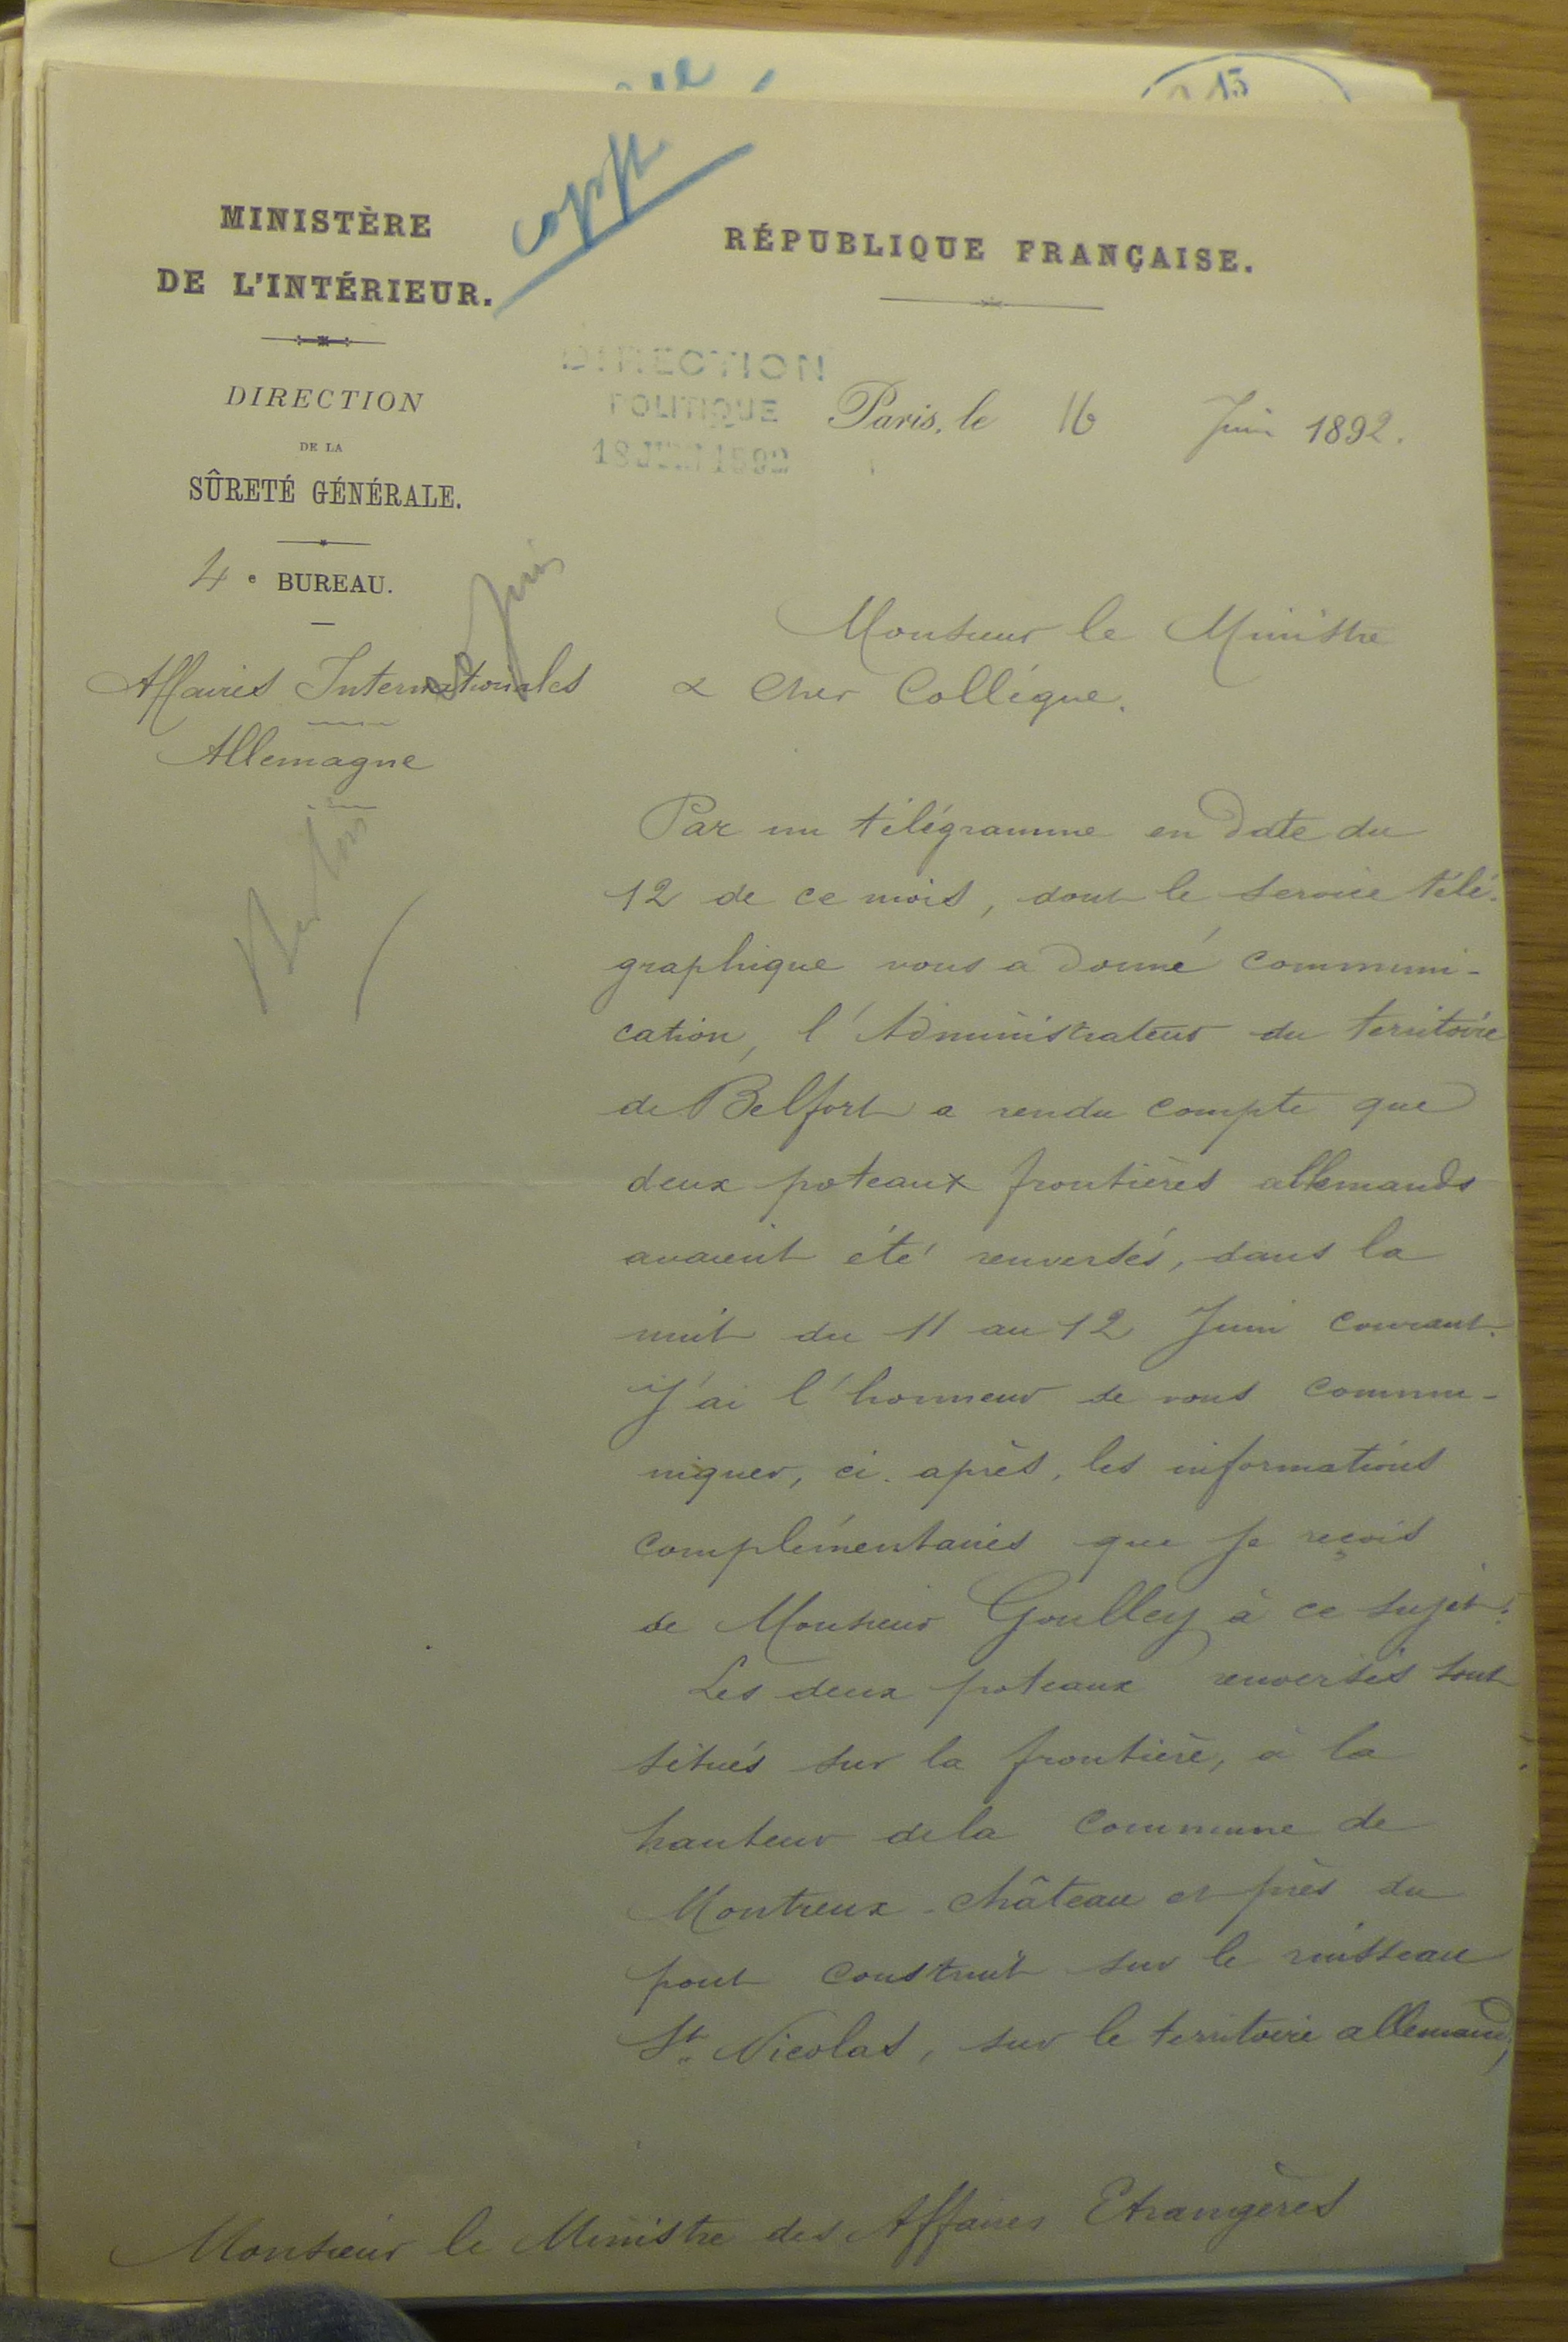 MINISTÈRE
DE L'INTÉRIEUR.
DIRECTION
DE LA
SÛRETÉ GÉNÉRALE.
4e BUREAU.
Affaires Internationales
Allemagne
RÉPUBLIQUE FRANÇAISE.
DIRECTION
POLITIQUE
18 JUIN 1892
Paris, le 16 Juin 1892.
Monsieur le Ministre
& Cher Collègue.
Par un télégramme en date du
12 de ce mois, dont le service télé-
graphique vous a donné communi-
cation, l'Administrateur du territoire
de Belfort a rendu compte que
deux poteaux frontières allemands
avaient été renversés, dans la
nuit du 11 au 12 Juin courant.
J'ai l'honneur de vous commu-
niquer, ci-après, les informations
complémentaires que je reçois
de Monsieur Goulley à ce sujet:
Les deux poteaux renversés sont
situés sur la frontière, à la
hauteur de la commune de
Montreux-château et près du
pont construit sur le ruisseau
St. Nicolas, sur le territoire allemand,
Monsieur le Ministre des Affaires Etrangères